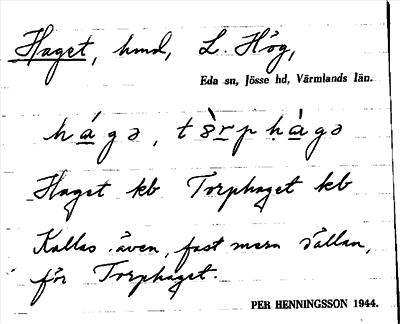 Haget, hmd, L. Hög,
Eda sn, Jösse hd, Värmlands län.
hágə, tò̀rphàgə
Haget kb Torphaget kb
Kallas även, fast mera sällan,
för Torphaget.
PER HENNINGSSON 1944.